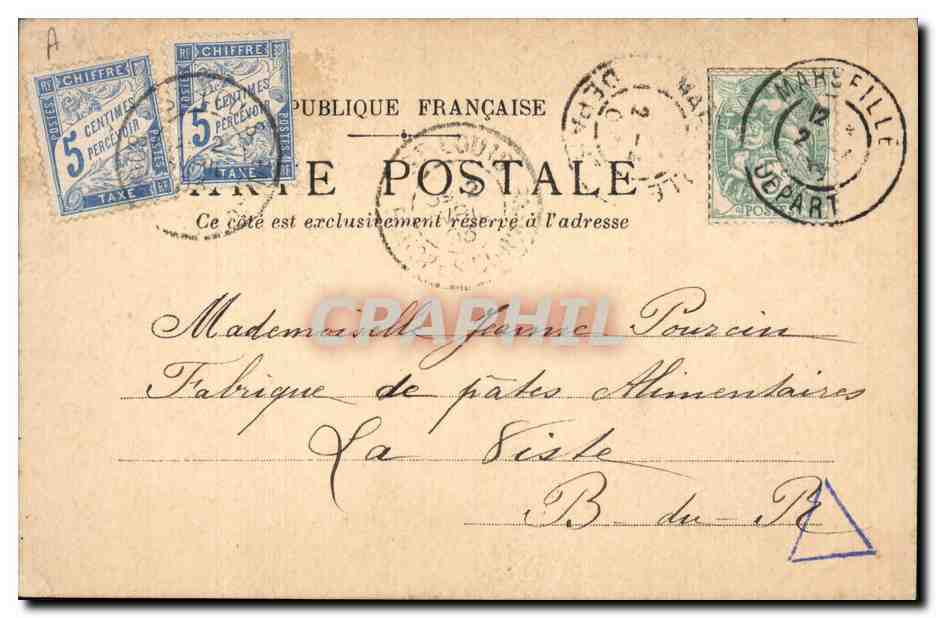 A
CHIFFRE
RF
POSTES
5 CENTIMES
PERCEVOIR
TAXE
CHIFFRE
RF
5 CENTIMES
PERCEVOIR
POSTES
TAXE
PUBLIQUE FRANÇAISE
MARSEILLE
12
2
DEPART
POSTES
RTE POSTALE
Ce côté est exclusivement réservé à l'adresse
CPAPHIL
Mademoiselle Jeanne Pourcin
Fabrique de pâtes Alimentaires
La Viste
B-du-R